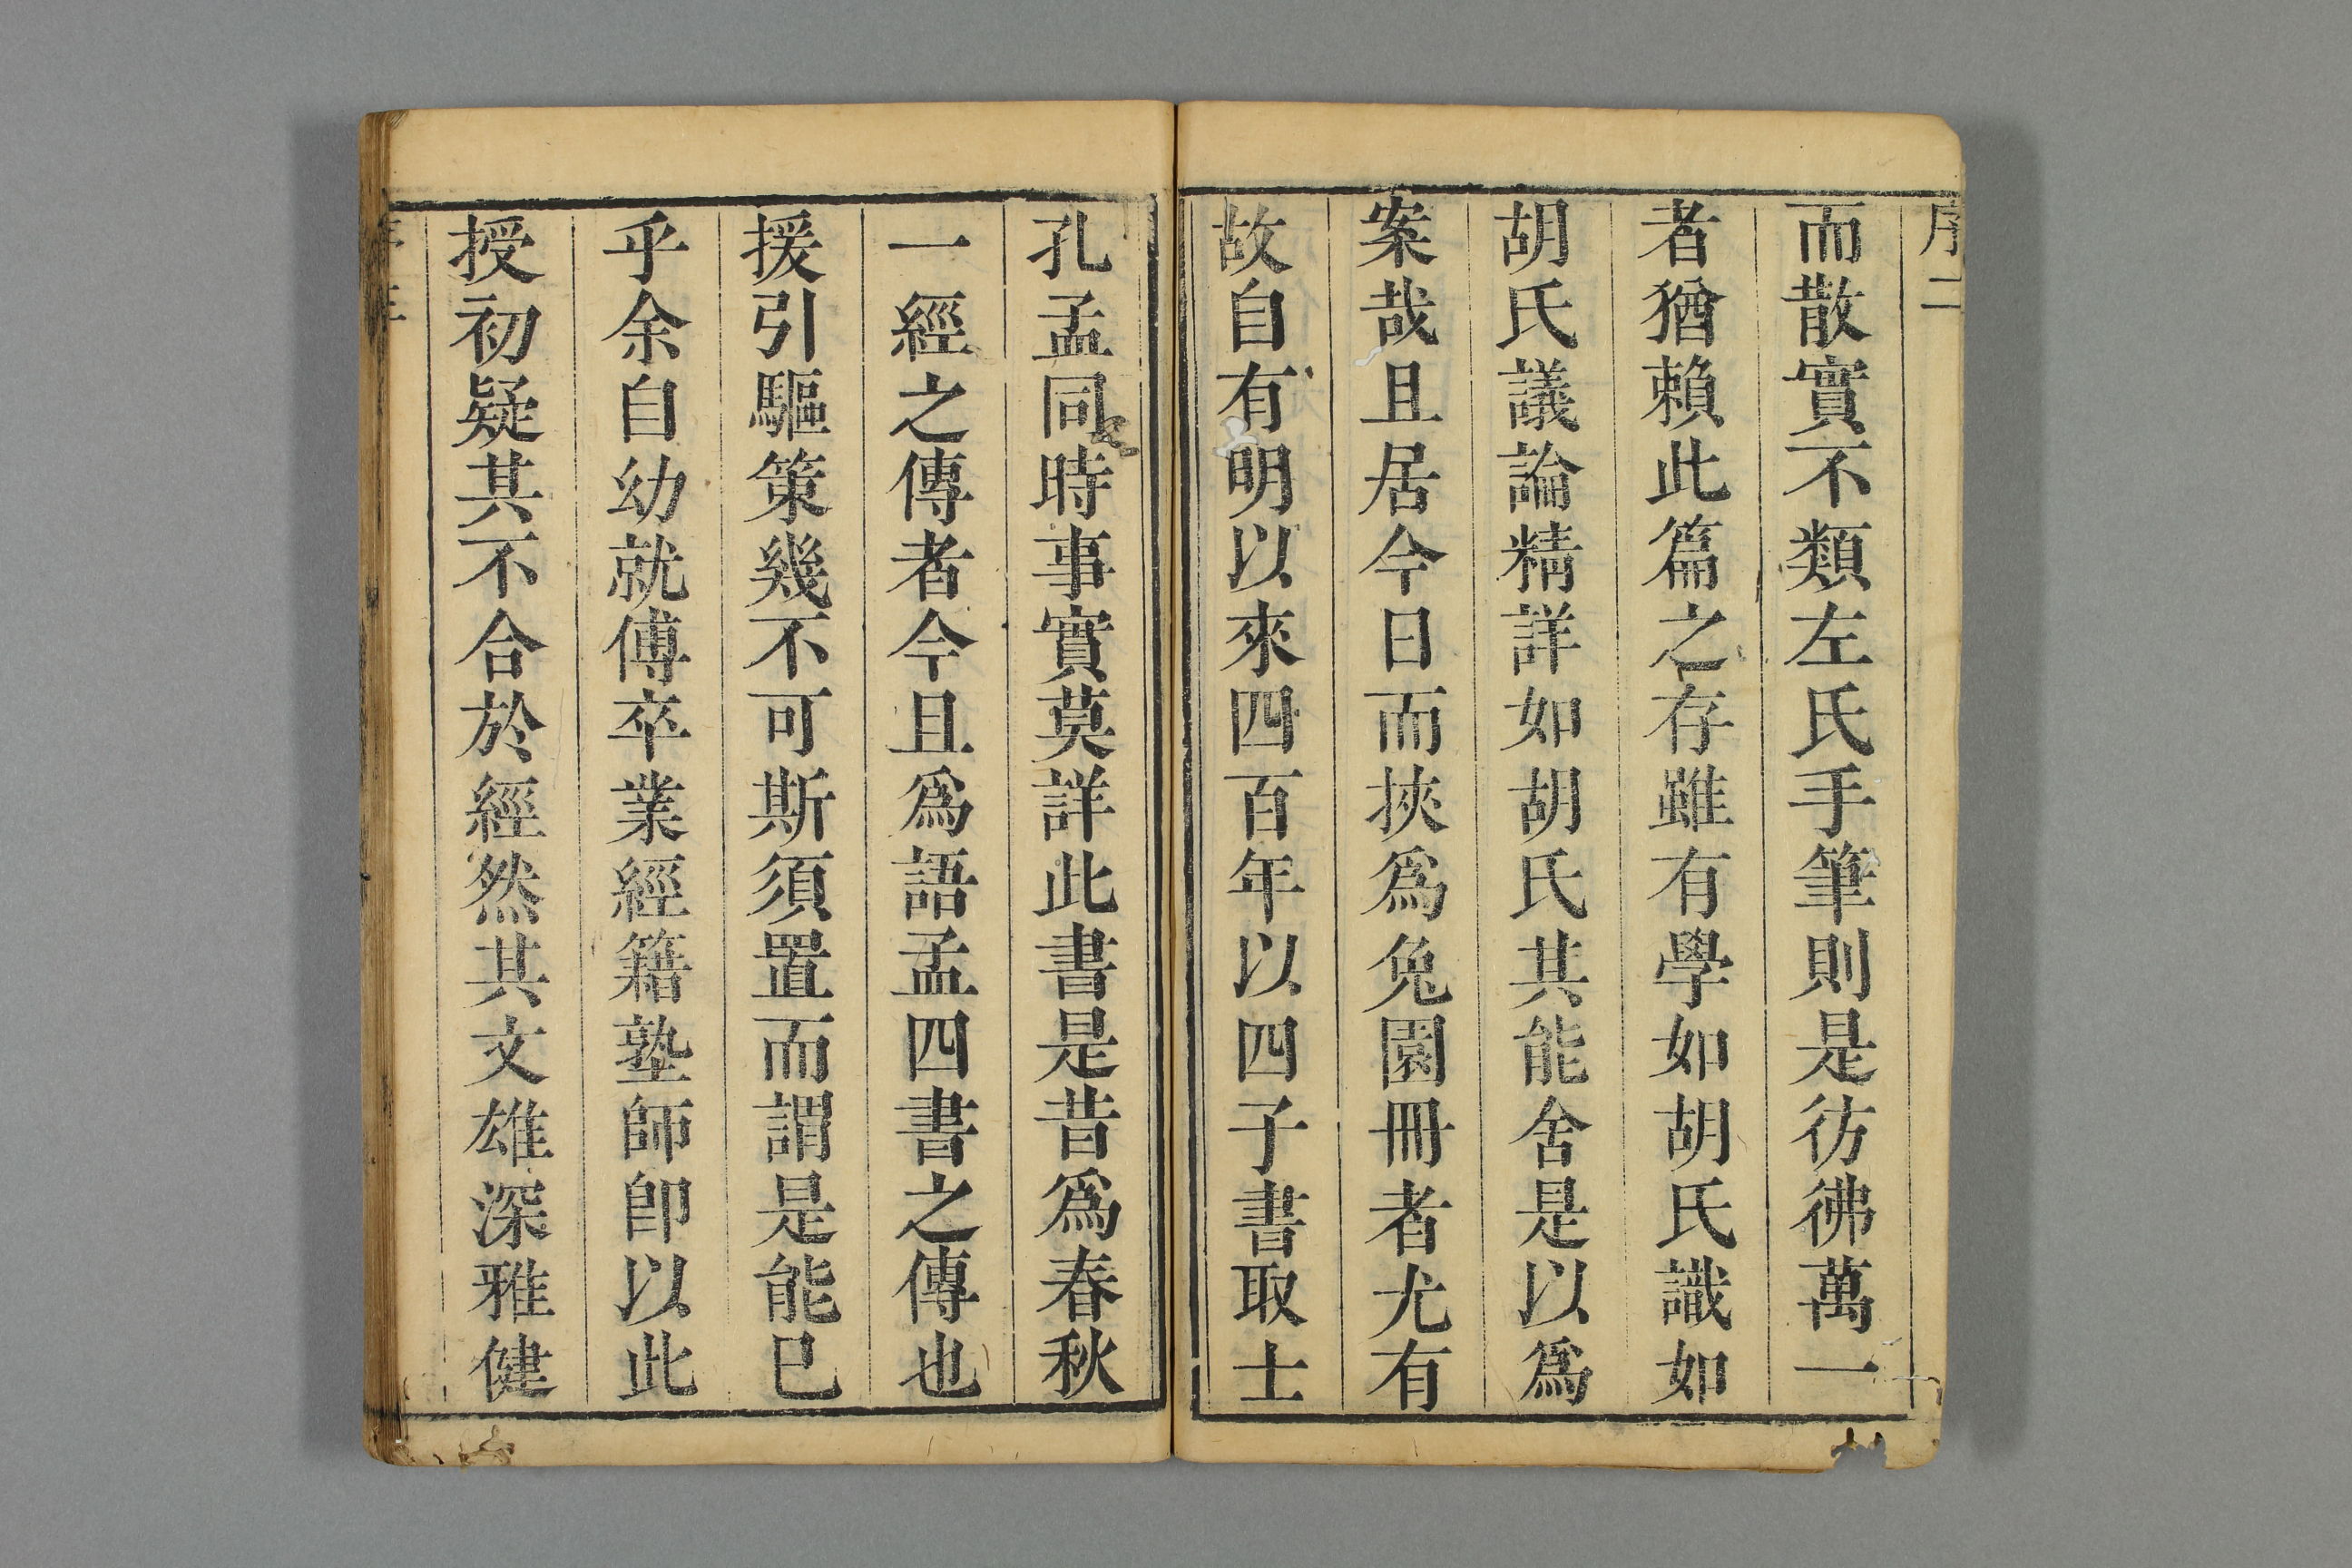 序二
而散實不類左氏手筆則是彷彿萬一
者猶賴此篇之存雖有學如胡氏識如
胡氏議論精詳如胡氏其能舍是以爲
案哉且居今日而挾爲兔園冊者尤有
故自有明以來四百年以四子書取士
孔孟同時事實莫詳此書是昔爲春秋
一經之傳者今且爲語孟四書之傳也
援引驅策幾不可斯須置而謂是能已
乎余自幼就傅卒業經籍塾師卽以此
授初疑其不合於經然其文雄深雅健